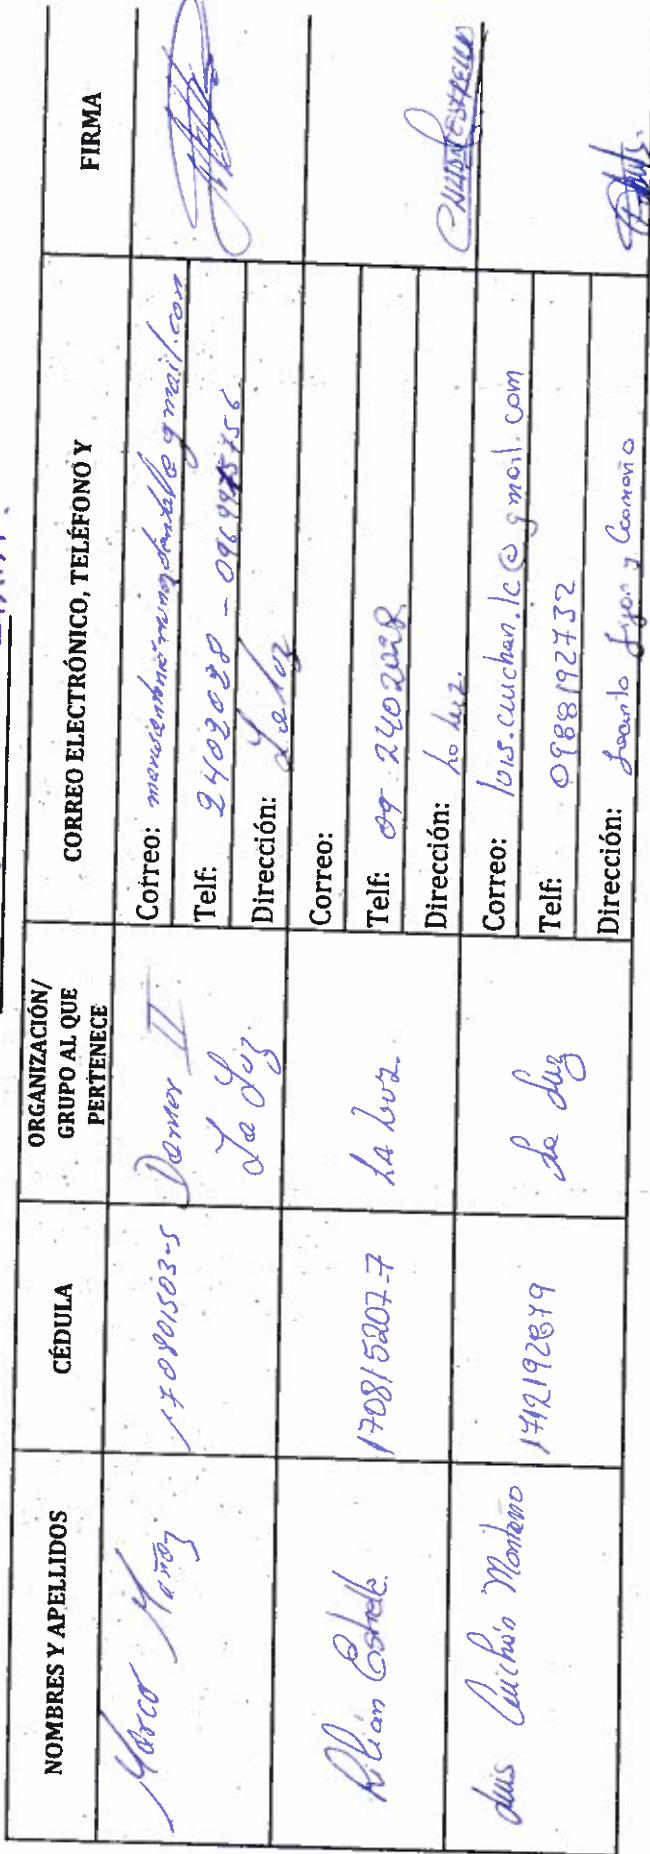 NOMBRES Y APELLIDOS
CÉDULA
ORGANIZACIÓN/
GRUPO AL QUE
PERTENECE
CORREO ELECTRÓNICO, TELÉFONO Y
FIRMA
Marco Muñoz
170801503-5
Dammer II
La Luz
Correo: gmail.com
Telf: 2402028 -
Dirección: La Luz
Lilian Estrella
170815207-7
La Luz
Correo:
Telf: 09 2402028
Dirección: La Luz.
Luis Cuichán Montero
1712192879
La Luz
Correo: luis.cuichan.lc@gmail.com
Telf: 0988192732
Dirección: Jacinto Jijon y Caamaño